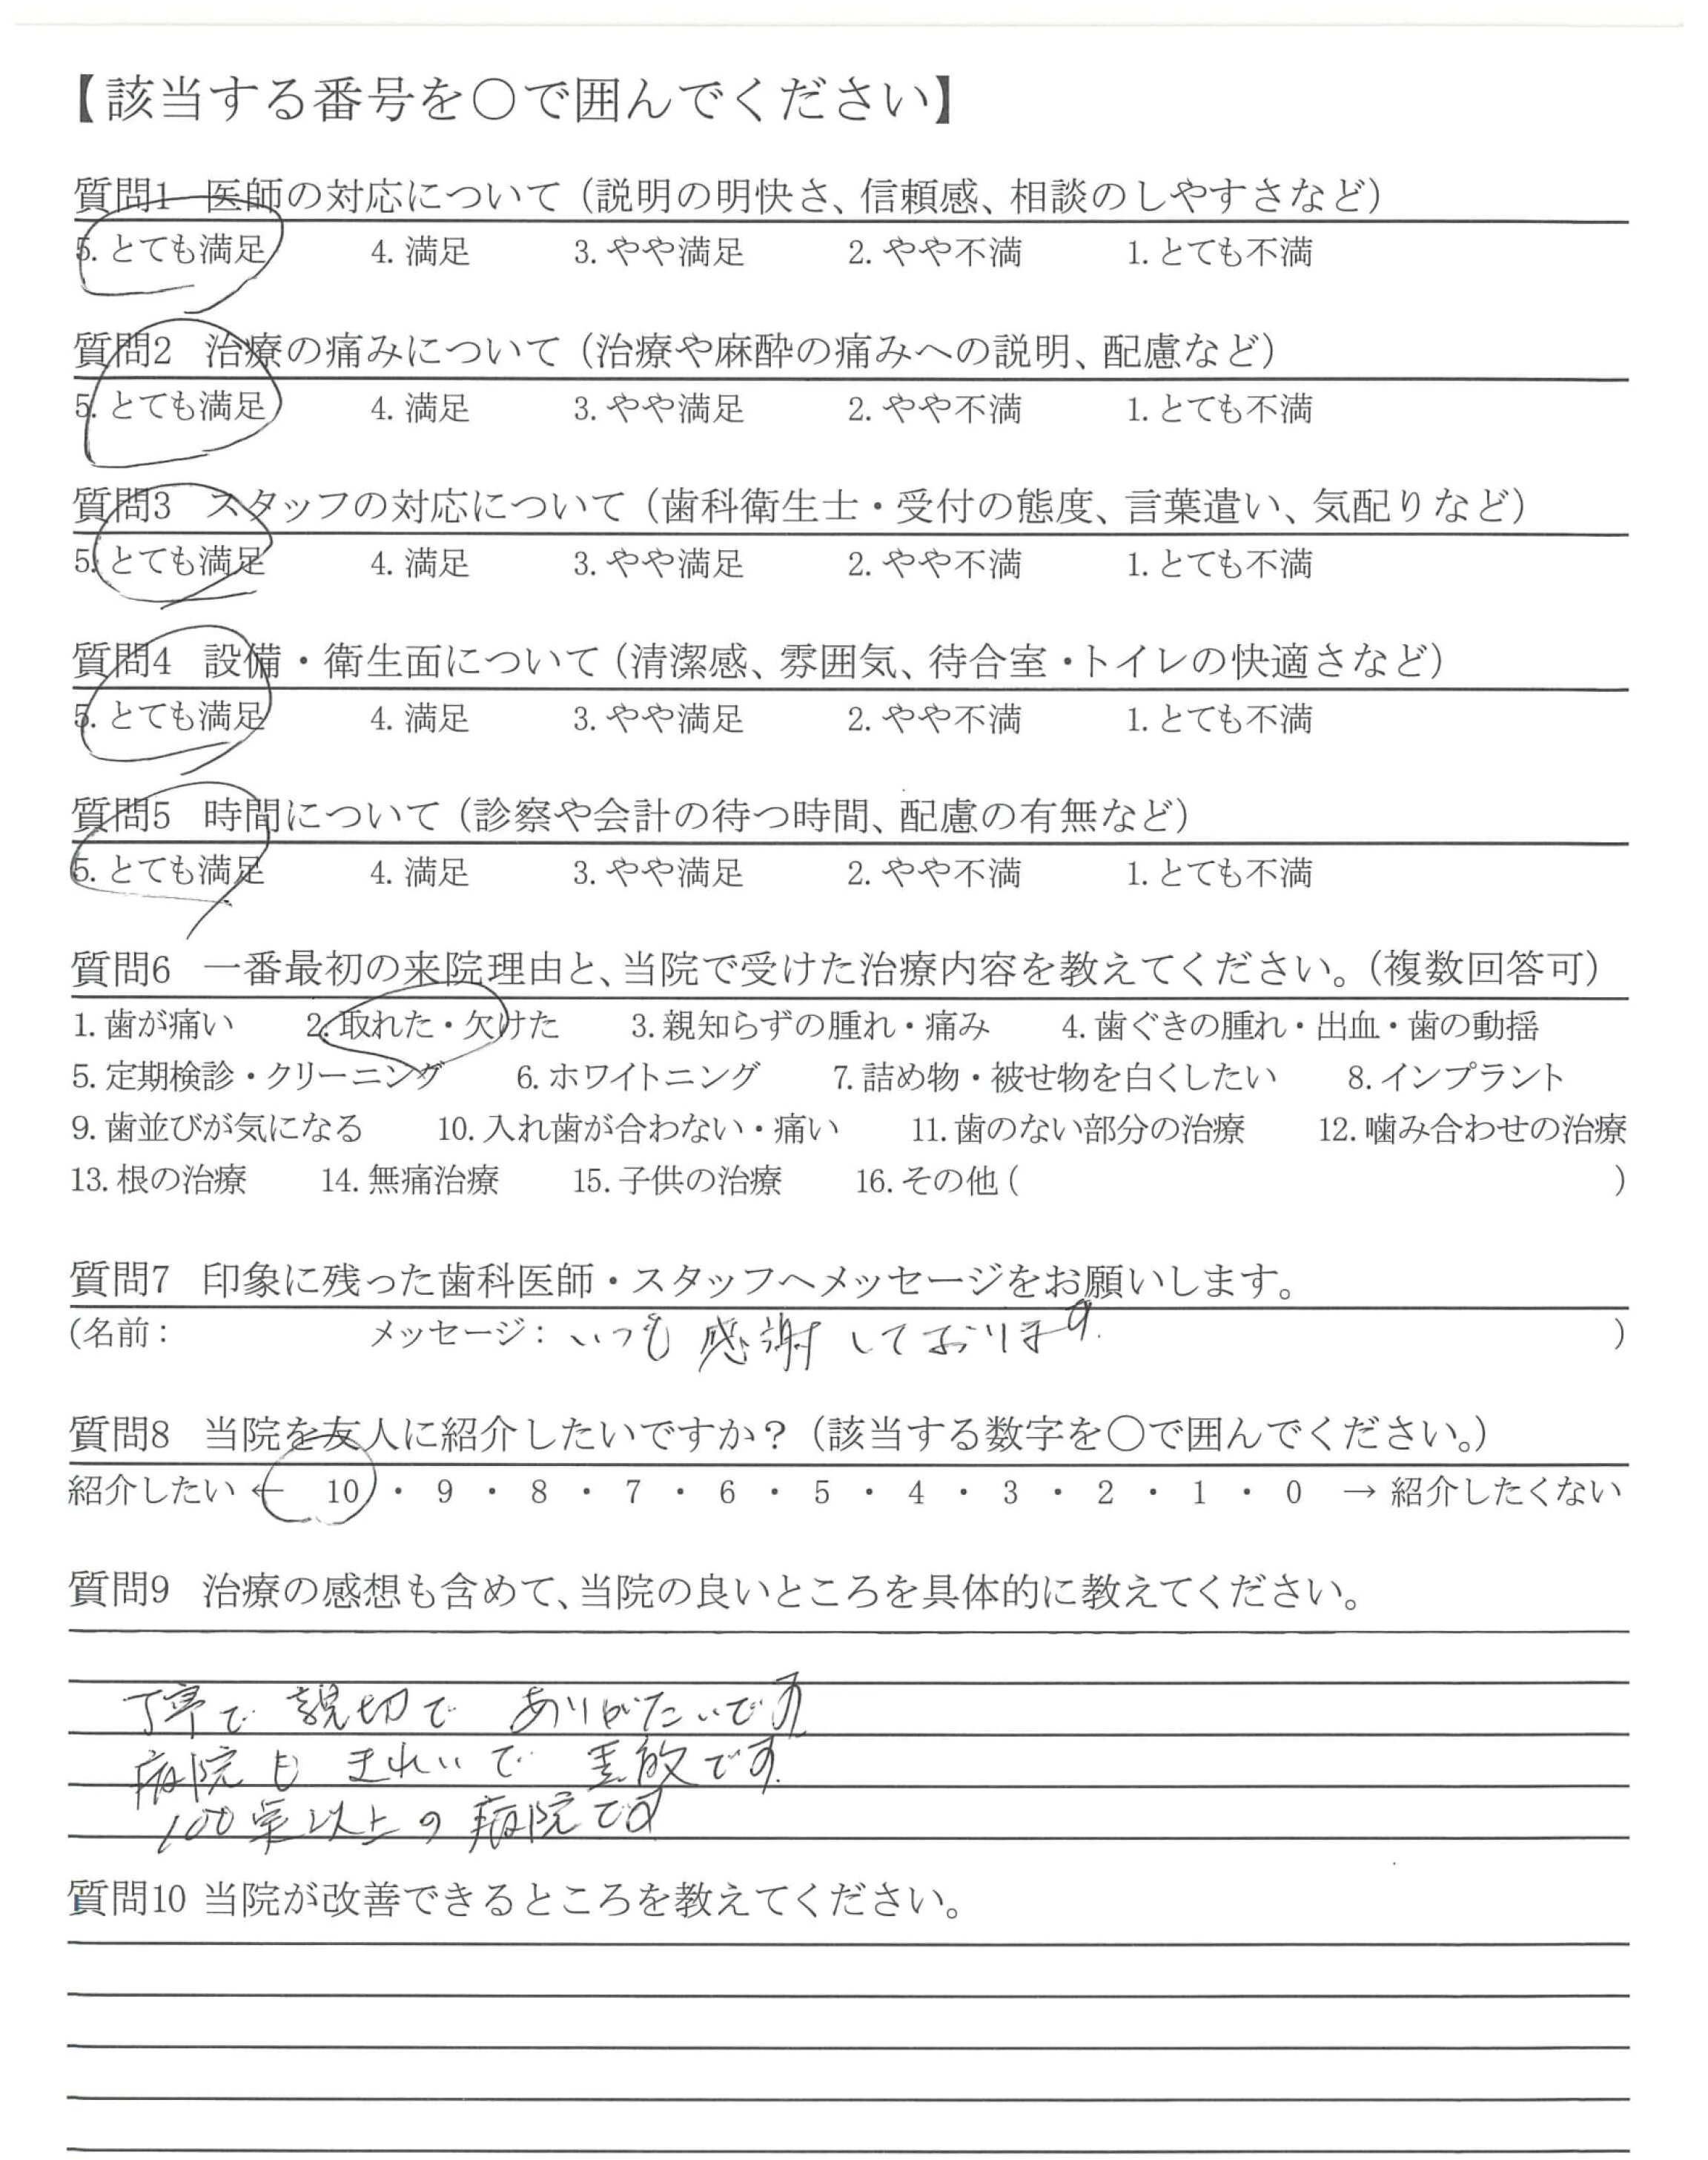 【該当する番号を〇で囲んでください】
質問1 医師の対応について（説明の明快さ、信頼感、相談のしやすさなど）
5. とても満足 4. 満足 3. やや満足 2. やや不満 1. とても不満
質問2 治療の痛みについて（治療や麻酔の痛みへの説明、配慮など）
5. とても満足 4. 満足 3. やや満足 2. やや不満 1. とても不満
質問3 スタッフの対応について（歯科衛生士・受付の態度、言葉遣い、気配りなど）
5. とても満足 4. 満足 3. やや満足 2. やや不満 1. とても不満
質問4 設備・衛生面について（清潔感、雰囲気、待合室・トイレの快適さなど）
5. とても満足 4. 満足 3. やや満足 2. やや不満 1. とても不満
質問5 時間について（診察や会計の待つ時間、配慮の有無など）
5. とても満足 4. 満足 3. やや満足 2. やや不満 1. とても不満
質問6 一番最初の来院理由と、当院で受けた治療内容を教えてください。（複数回答可）
1. 歯が痛い 2. 取れた・欠けた 3. 親知らずの腫れ・痛み 4. 歯ぐきの腫れ・出血・歯の動揺
5. 定期検診・クリーニング 6. ホワイトニング 7. 詰め物・被せ物を白くしたい 8. インプラント
9. 歯並びが気になる 10. 入れ歯が合わない・痛い 11. 歯のない部分の治療 12. 噛み合わせの治療
13. 根の治療 14. 無痛治療 15. 子供の治療 16. その他 ( )
質問7 印象に残った歯科医師・スタッフへメッセージをお願いします。
(名前： メッセージ：いつも 感謝 しております. )
質問8 当院を友人に紹介したいですか？（該当する数字を〇で囲んでください。）
紹介したい ← 10 ・ 9 ・ 8 ・ 7 ・ 6 ・ 5 ・ 4 ・ 3 ・ 2 ・ 1 ・ 0 → 紹介したくない
質問9 治療の感想も含めて、当院の良いところを具体的に教えてください。
丁寧で 親切で ありがたいです
病院も きれいで 素敵です.
100点以上の 病院です
質問10 当院が改善できるところを教えてください。